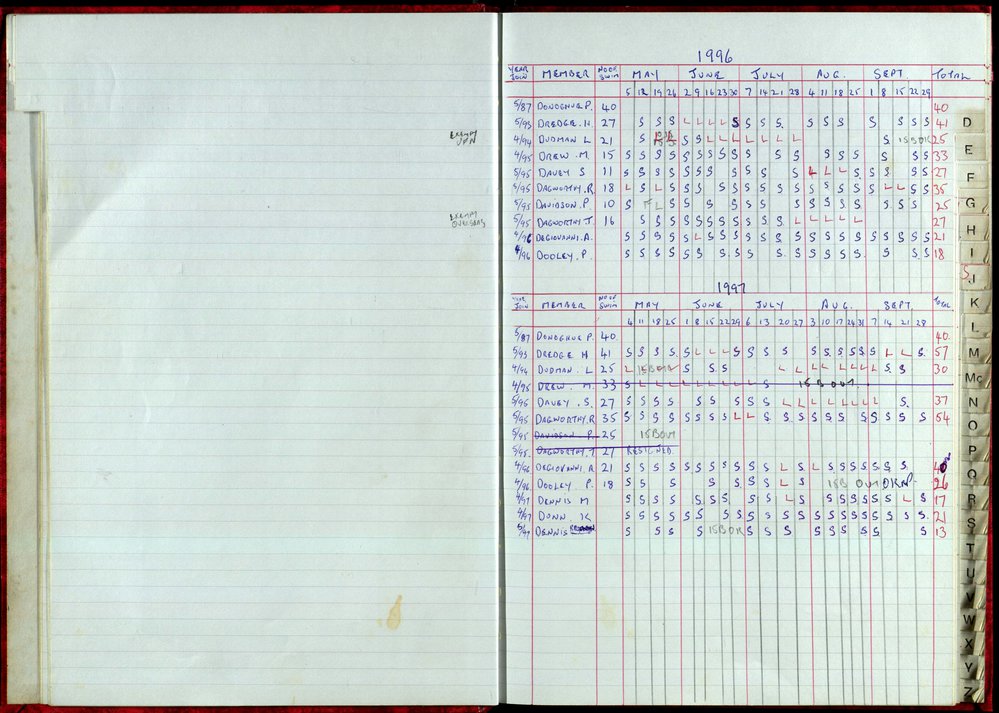 EXEMPT
JPN
EXEMPT
OVERSEAS
1996
YEAR JOIN MEMBER NO OF SWIM MAY JUNE JULY AUG. SEPT. TOTAL
5 12 19 26 2 9 16 23 30 7 14 21 28 4 11 18 25 1 8 15 22 29
5/87 DONOGHUE P. 40 40
5/93 DREDGE. H. 27 S S S L L L L S S S S S S S S S S S 41
4/94 DUDMAN L 21 S S S L L L L L L L S 15 BOR 25
4/95 DREW. M 15 S S S S S S S S S S S S S S S S S S 33
5/95 DAVEY S 11 S S S S S S S S S S S L L L S S S S S 27
5/95 DAGWORTHY. R. 18 L S L S S S S S S S S S S S S S S S L L S S 35
5/95 DAVIDSON. P. 10 S L S S S S S S S S S S S S S 25
5/95 DAGWORTHY J. 16 S S S S S S S S S S S L L L L L 27
4/96 DEGIOVANNI. A. S S S S S L S S S S S S S S S S S S S S S S 21
4/96 DOOLEY. P. S S S S S S S S S S S S S S S S S S 18
1997
YEAR JOIN MEMBER NO OF SWIM MAY JUNE JULY AUG. SEPT. TOTAL
4 11 18 25 1 8 15 22 29 6 13 20 27 3 10 17 24 31 7 14 21 28
5/87 DONOGHUE P. 40 40
5/93 DREDGE H 41 S S S S S L L L S S S S S S S S S S L L S 57
4/94 DUDMAN. L 25 L 15 BOR S S S L L L L L L L L S S 30
4/95 DREW. M. 33 S L L L L L L L L S 15 B OUT
5/95 DAVEY .S. 27 S S S S S S S S S S L L L L L L L S 37
5/95 DAGWORTHY. R 35 S S S S S S S S L L S S S S S S S S S S S 54
5/95 DAVIDSON P. 25 15 BOUT
5/95. DAGWORTHY. J 27 RESIGNED
4/96 DEGIOVANNI. A 21 S S S S S S S S S S S L S L S S S S S S S
4/96 DOOLEY. P. 18 S S S S S S S L S 15 B OUT 26
4/97 DENNIS M S S S S S S S S S L S S S S S S S L S 17
4/97 DUNN K S S S S S S S S S S S S S S S S S S S S S 21
5/97 DENNIS S S S S 15 BOR S S L S S S S S S S 13
D
E
F
G
H
I
J
K
L
M
Mc
N
O
P
Q
R
S
T
U
V
W
X
Y
Z